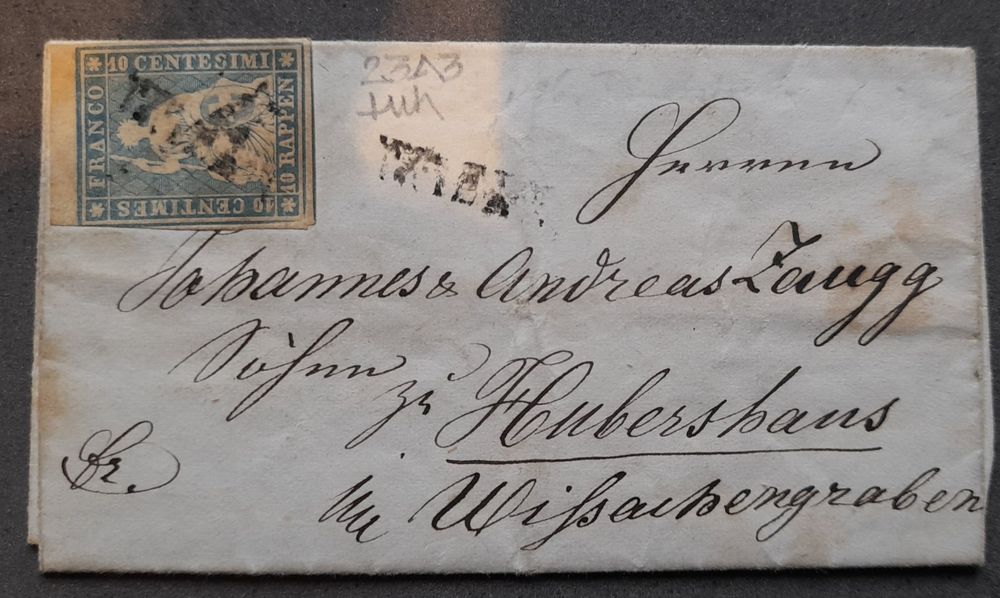 10 CENTESIMI
FRANCO
10 RAPPEN
10 CENTIMES
Herren
Johannes & Andreas Zaugg
Söhne zu Hubershaus
Wißachengraben
fr.